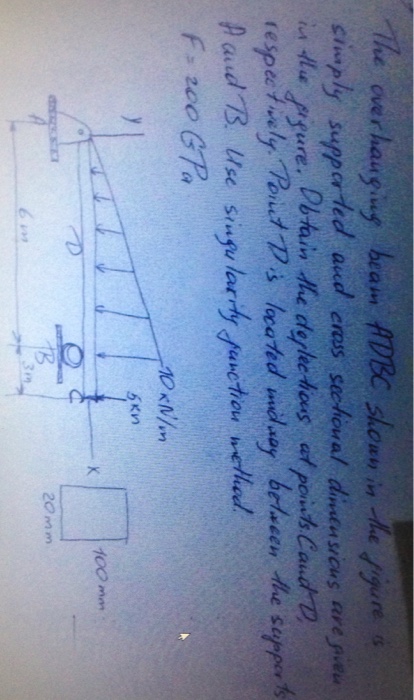 The overhanging beam ADBC shown in the figure is
simply supported and cross sectional dimensions are given
in the figure. Obtain the deflections at points C and D,
respectively. Point D is located midway between the supports
A and B. Use singularity function method.
E = 200 GPa
y
10 kN/m
5kN
x
A
D
B
C
6 m
3m
100 mm
20 mm